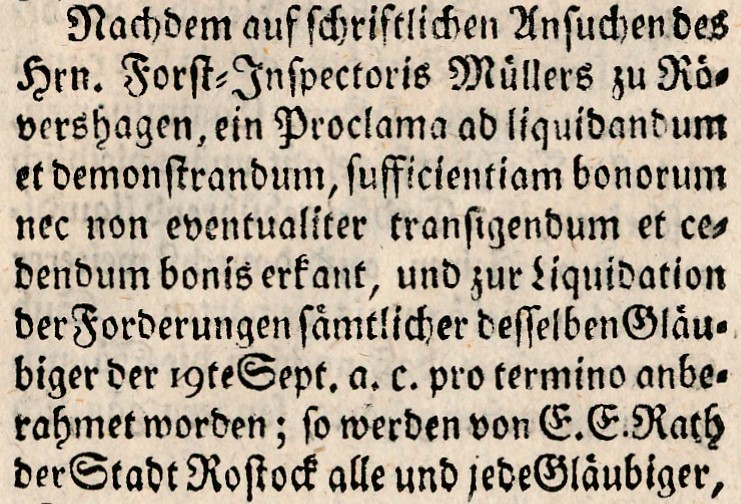 Nachdem auf schriftlichen Ansuchen des
Hrn. Forst-Inspectoris Müllers zu Rö-
vershagen, ein Proclama ad liquidandum
et demonstrandum, sufficientiam bonorum
nec non eventualiter transigendum et ce-
dendum bonis erkant, und zur Liquidation
der Forderungen sämtlicher desselben Gläu-
biger der 19te Sept. a. c. pro termino anbe-
rahmet worden; so werden von E. E. Rath
der Stadt Rostock alle und jede Gläubiger,